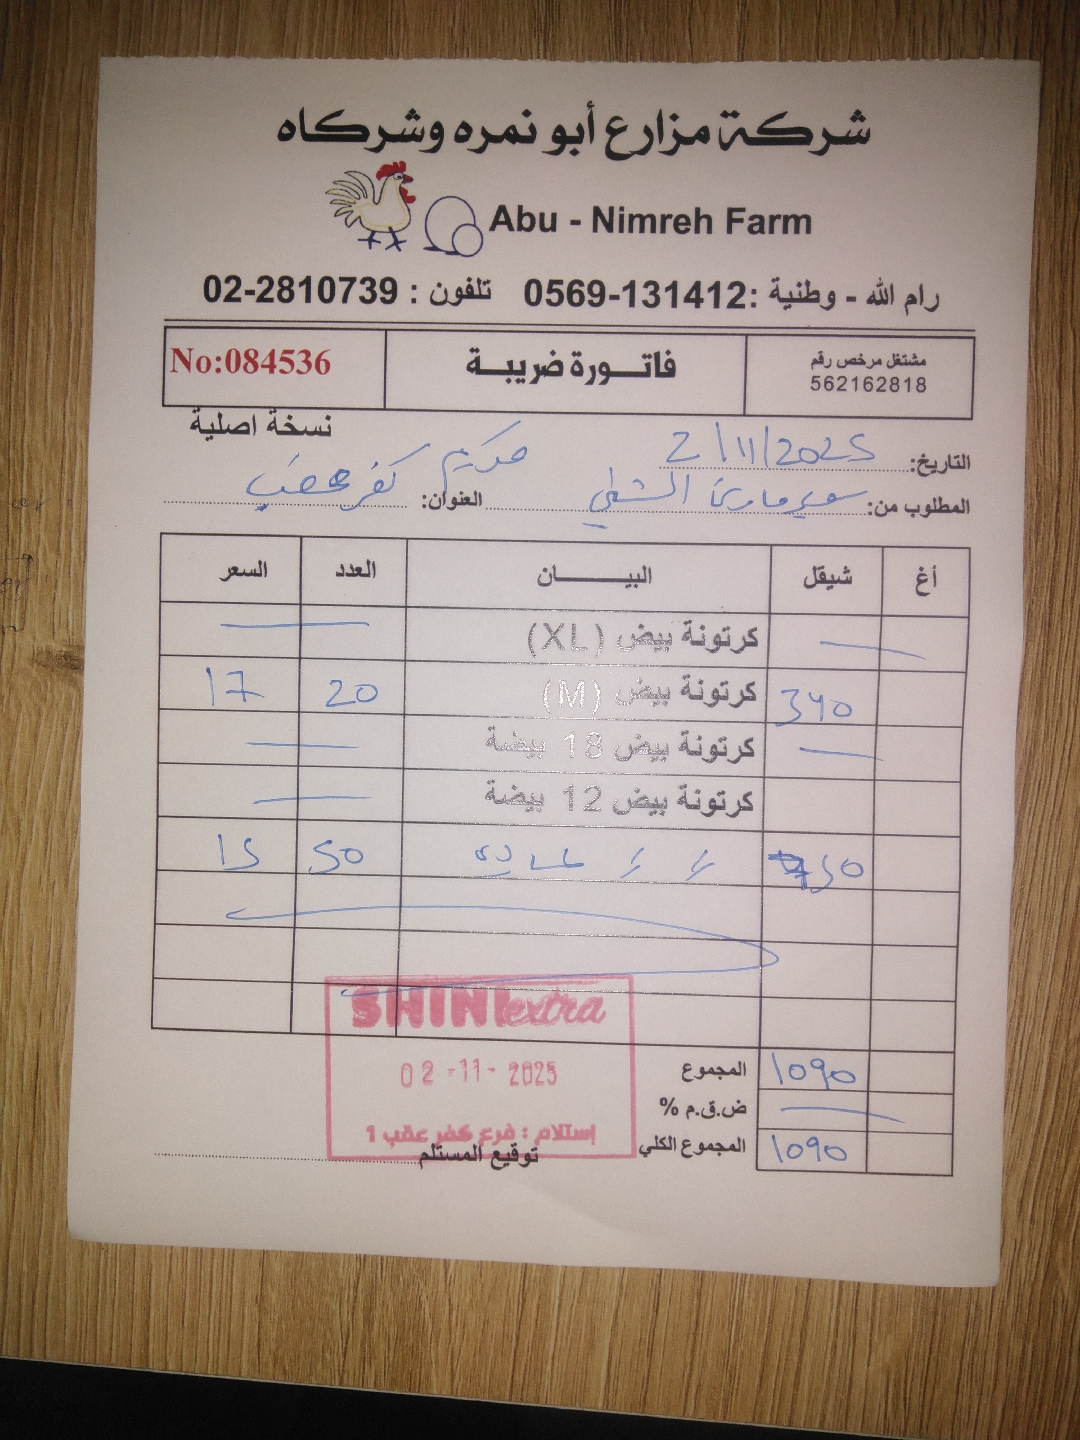 شركة مزارع أبو نمره وشركاه
Abu - Nimreh Farm
رام الله - وطنية :0569-131412 تلفون : 02-2810739
مشتغل مرخص رقم
562162818
فاتـورة ضريبة
No:084536
نسخة اصلية
التاريخ: 2/11/2025
المطلوب من: العنوان: كفر عقب
أغ شيقل البيـــــان العدد السعر
كرتونة بيض (XL)
340 كرتونة بيض (M) 20 17
كرتونة بيض 18 بيضة
كرتونة بيض 12 بيضة
750 50 15
SHINI extra
02-11-2025
إستلام : فرع كفر عقب 1
المجموع 1090
ض.ق.م %
المجموع الكلي 1090
توقيع المستلم